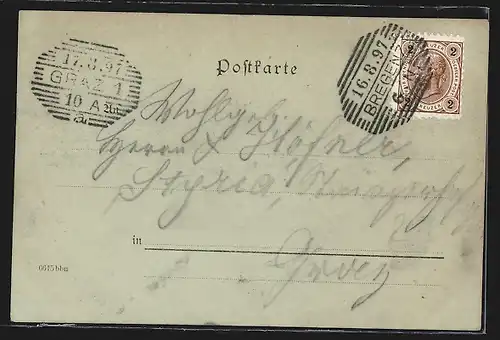 17.8.97
GRAZ 1
10 A
Postkarte
16.8.97
BREGENZ
2 2
KREUZER
2 2
Wohlgeb.
Herrn J. Höfner,
Styria,
in
Graz
6615 bbm